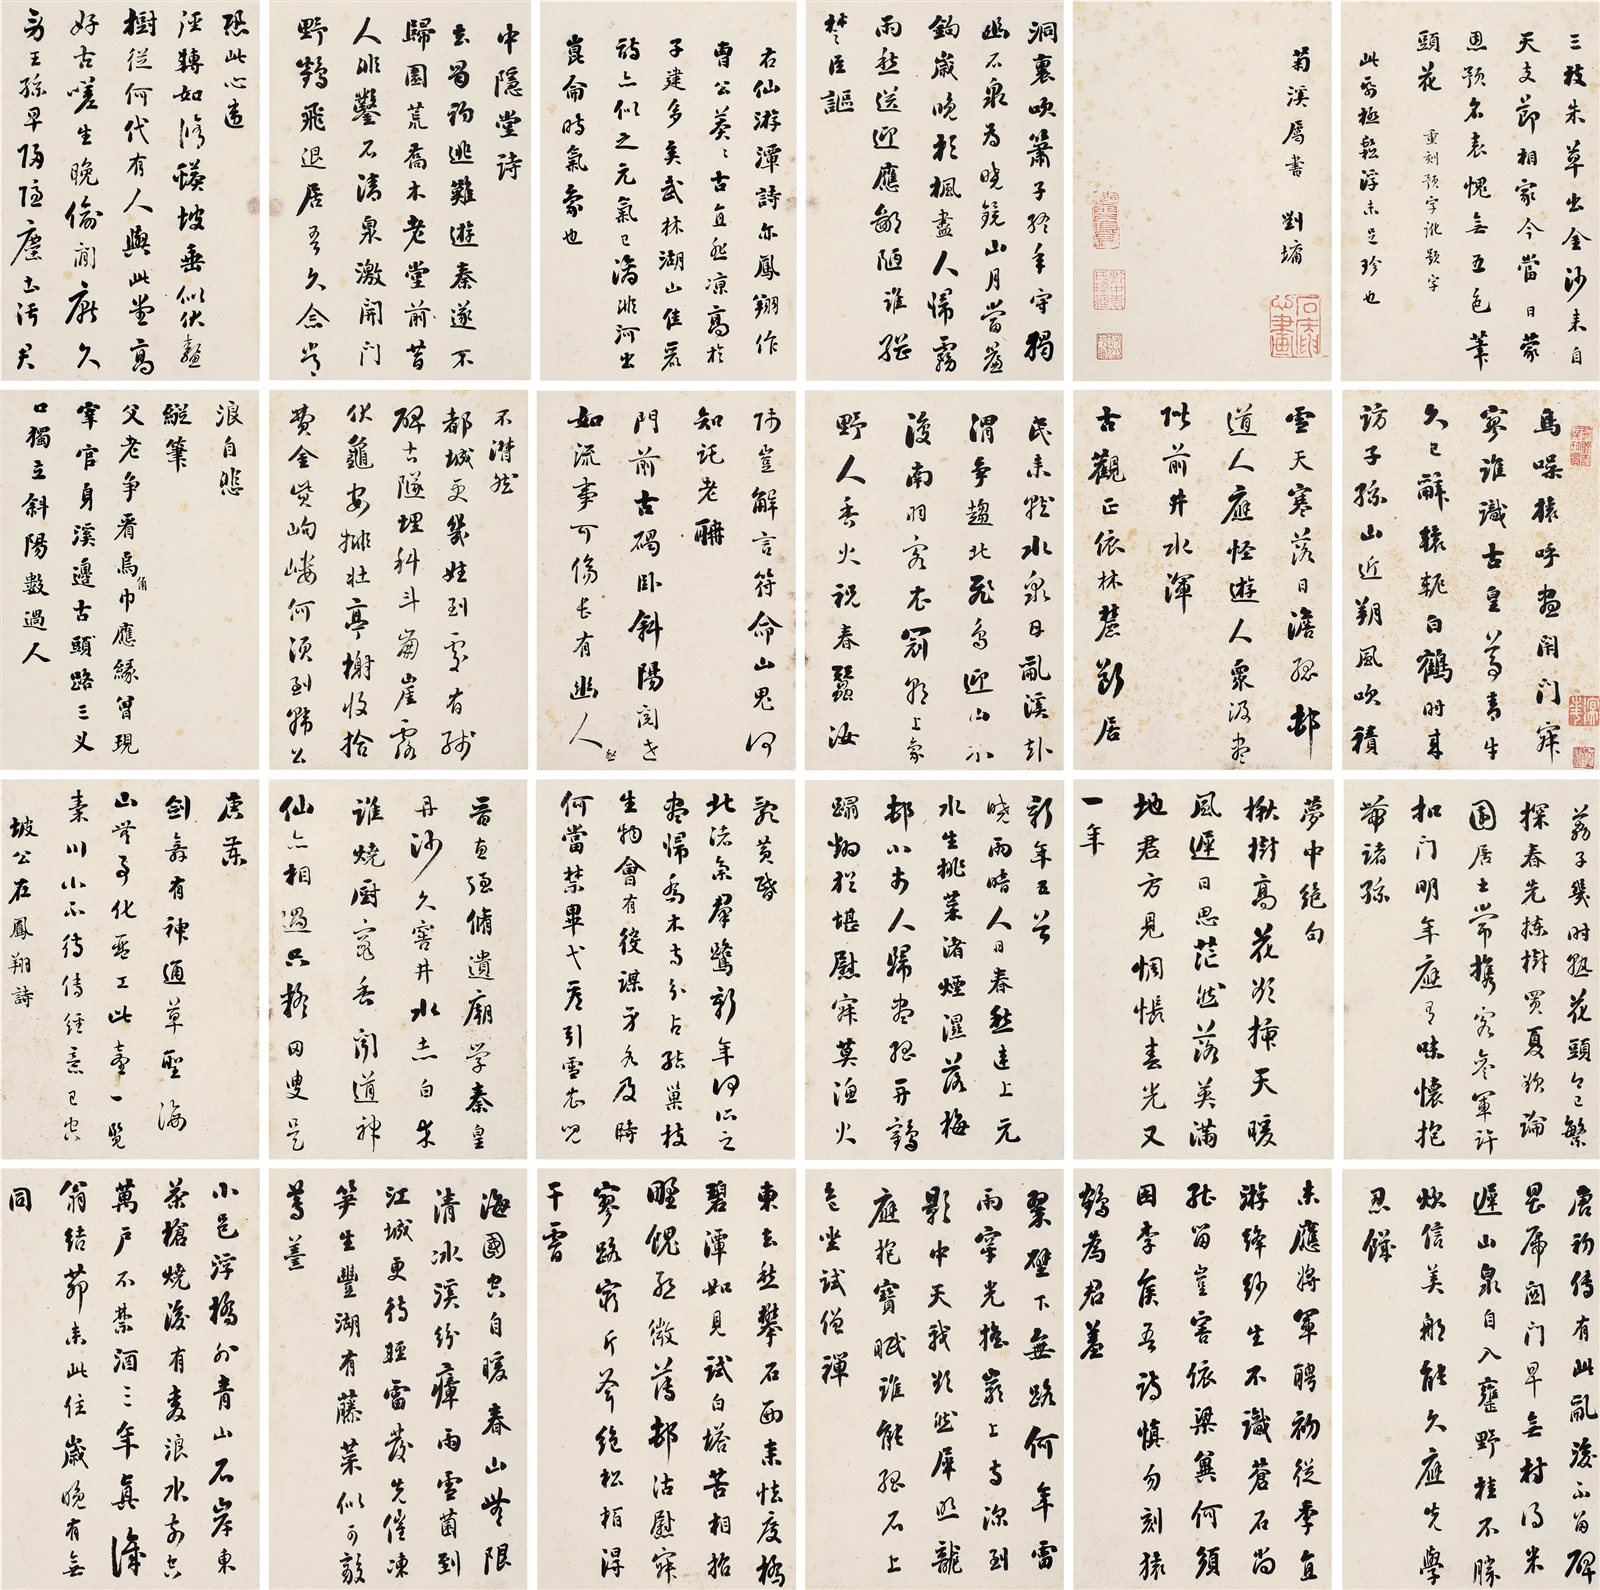 三枝朱草出金沙來自
天支節相家今當日蒙
恩預名表愧無五色筆
頭花 重刻題字訛題字
此帋極輕浮未足珍也
菊溪屬書 劉墉
洞裏吹簫子終年守獨
幽石泉為曉鏡山月當簾
鉤歲晚杉楓盡人歸霧
雨愁送迎應鄙陋誰繼
楚臣謳
右仙游潭詩亦鳳翔作
曹公莽莽古直悲涼高於
子建多矣武林湖山佳麗
詩亦似之元氣已漓非河出
崑崙時氣象也
中隱堂詩
去蜀初逃難遊秦遂不
歸園荒喬木老堂前昔
人非鑿石清泉激開門
野鶴飛退居吾久念常
恐此心違
徑轉如修蟒坡垂似伏鼇
樹從何代有人與此堂高
好古嗟生晚偷閒厭久
勞王孫早歸隱塵土汙君
烏噪猿呼晝閉門寂
寥誰識古皇尊青牛
久已辭轅軛白鶴時來
訪子孫山近朔風吹積
雪天寒落日澹孤邨
道人應怪遊人眾汲盡
階前井水渾
古觀正依林麓斷居
民來就水泉甘亂溪赴
渭爭趨北飛鳥迎山不
復南羽客衣冠朝上象
野人香火祝春蠶汝
師豈解言符命山鬼何
知託老聃
門前古碣臥斜陽閱世
如流事可傷長有幽人悲
不潸然
都城更幾姓到處有殘
碑古隧埋科斗崩崖露
伏龜安排壯亭榭收拾
費金貲岣嶁何須到韓公
浪自悲
縱筆
父老爭看烏角巾應緣曾現
宰官身溪邊古頭路三叉
口獨立斜陽數過人
荔子幾時熟花頭今已繁
探春先揀樹買夏欲論
園居士常攜客參軍許
扣門明年應有味懷抱
帶諸孫
夢中絕句
楸樹高花欲插天暖
風遲日思茫然落英滿
地君方見惆悵春光又
一年
新年五首
曉雨暗人日春愁連上元
水生挑菜渚煙濕落梅
邨小市人歸盡孤舟鶴
踏翻猶堪慰寂莫漁火
亂黃昏
北渚集群鷺新年何所之
盡歸喬木寺分占結巢枝
生物會有役謀身各及時
何當禁畢弋看引雪衣兒
晉惠強修遺廟學秦皇
丹沙久窖井水赤白朮
誰燒廚竈香聞道神
仙亦相過只疑田叟是
庚桑
劍舞有神通草聖海
山無事化琴工此臺一覽
秦川小不待傳經意已空
坡公在鳳翔詩
唐初傳有此亂後不留碑
畏虎關門早無村得米
遲山泉自入甕野桂不勝
炊信美那能久應先學
忍饑
未應將軍聘初從季直
游絳紗生不識蒼石尚
能留豈害依梁冀何須
困李侯吾詩慎勿刻猿
鶴為君羞
翠壁下無路何年雷
雨穿光搖巖上寺深到
影中天我欲然犀照龍
應抱寶眠誰能孤石上
危坐試僧禪
東去愁攀石西來怯度橋
碧潭如見試白塔苦相招
野餽慙微薄邨沽慰寂
寥路窮斤斧絕松栢得
干霄
海國空自暖春山無限
清冰溪紛瘴雨雪菌到
江城更待輕雷發先催凍
筍生豐湖有藤菜似可敵
蓴羹
小邑浮橋外青山石岸東
茶槍燒後有麥浪水前空
萬戶不禁酒三年真識
翁結茆來此住歲晚有無
同